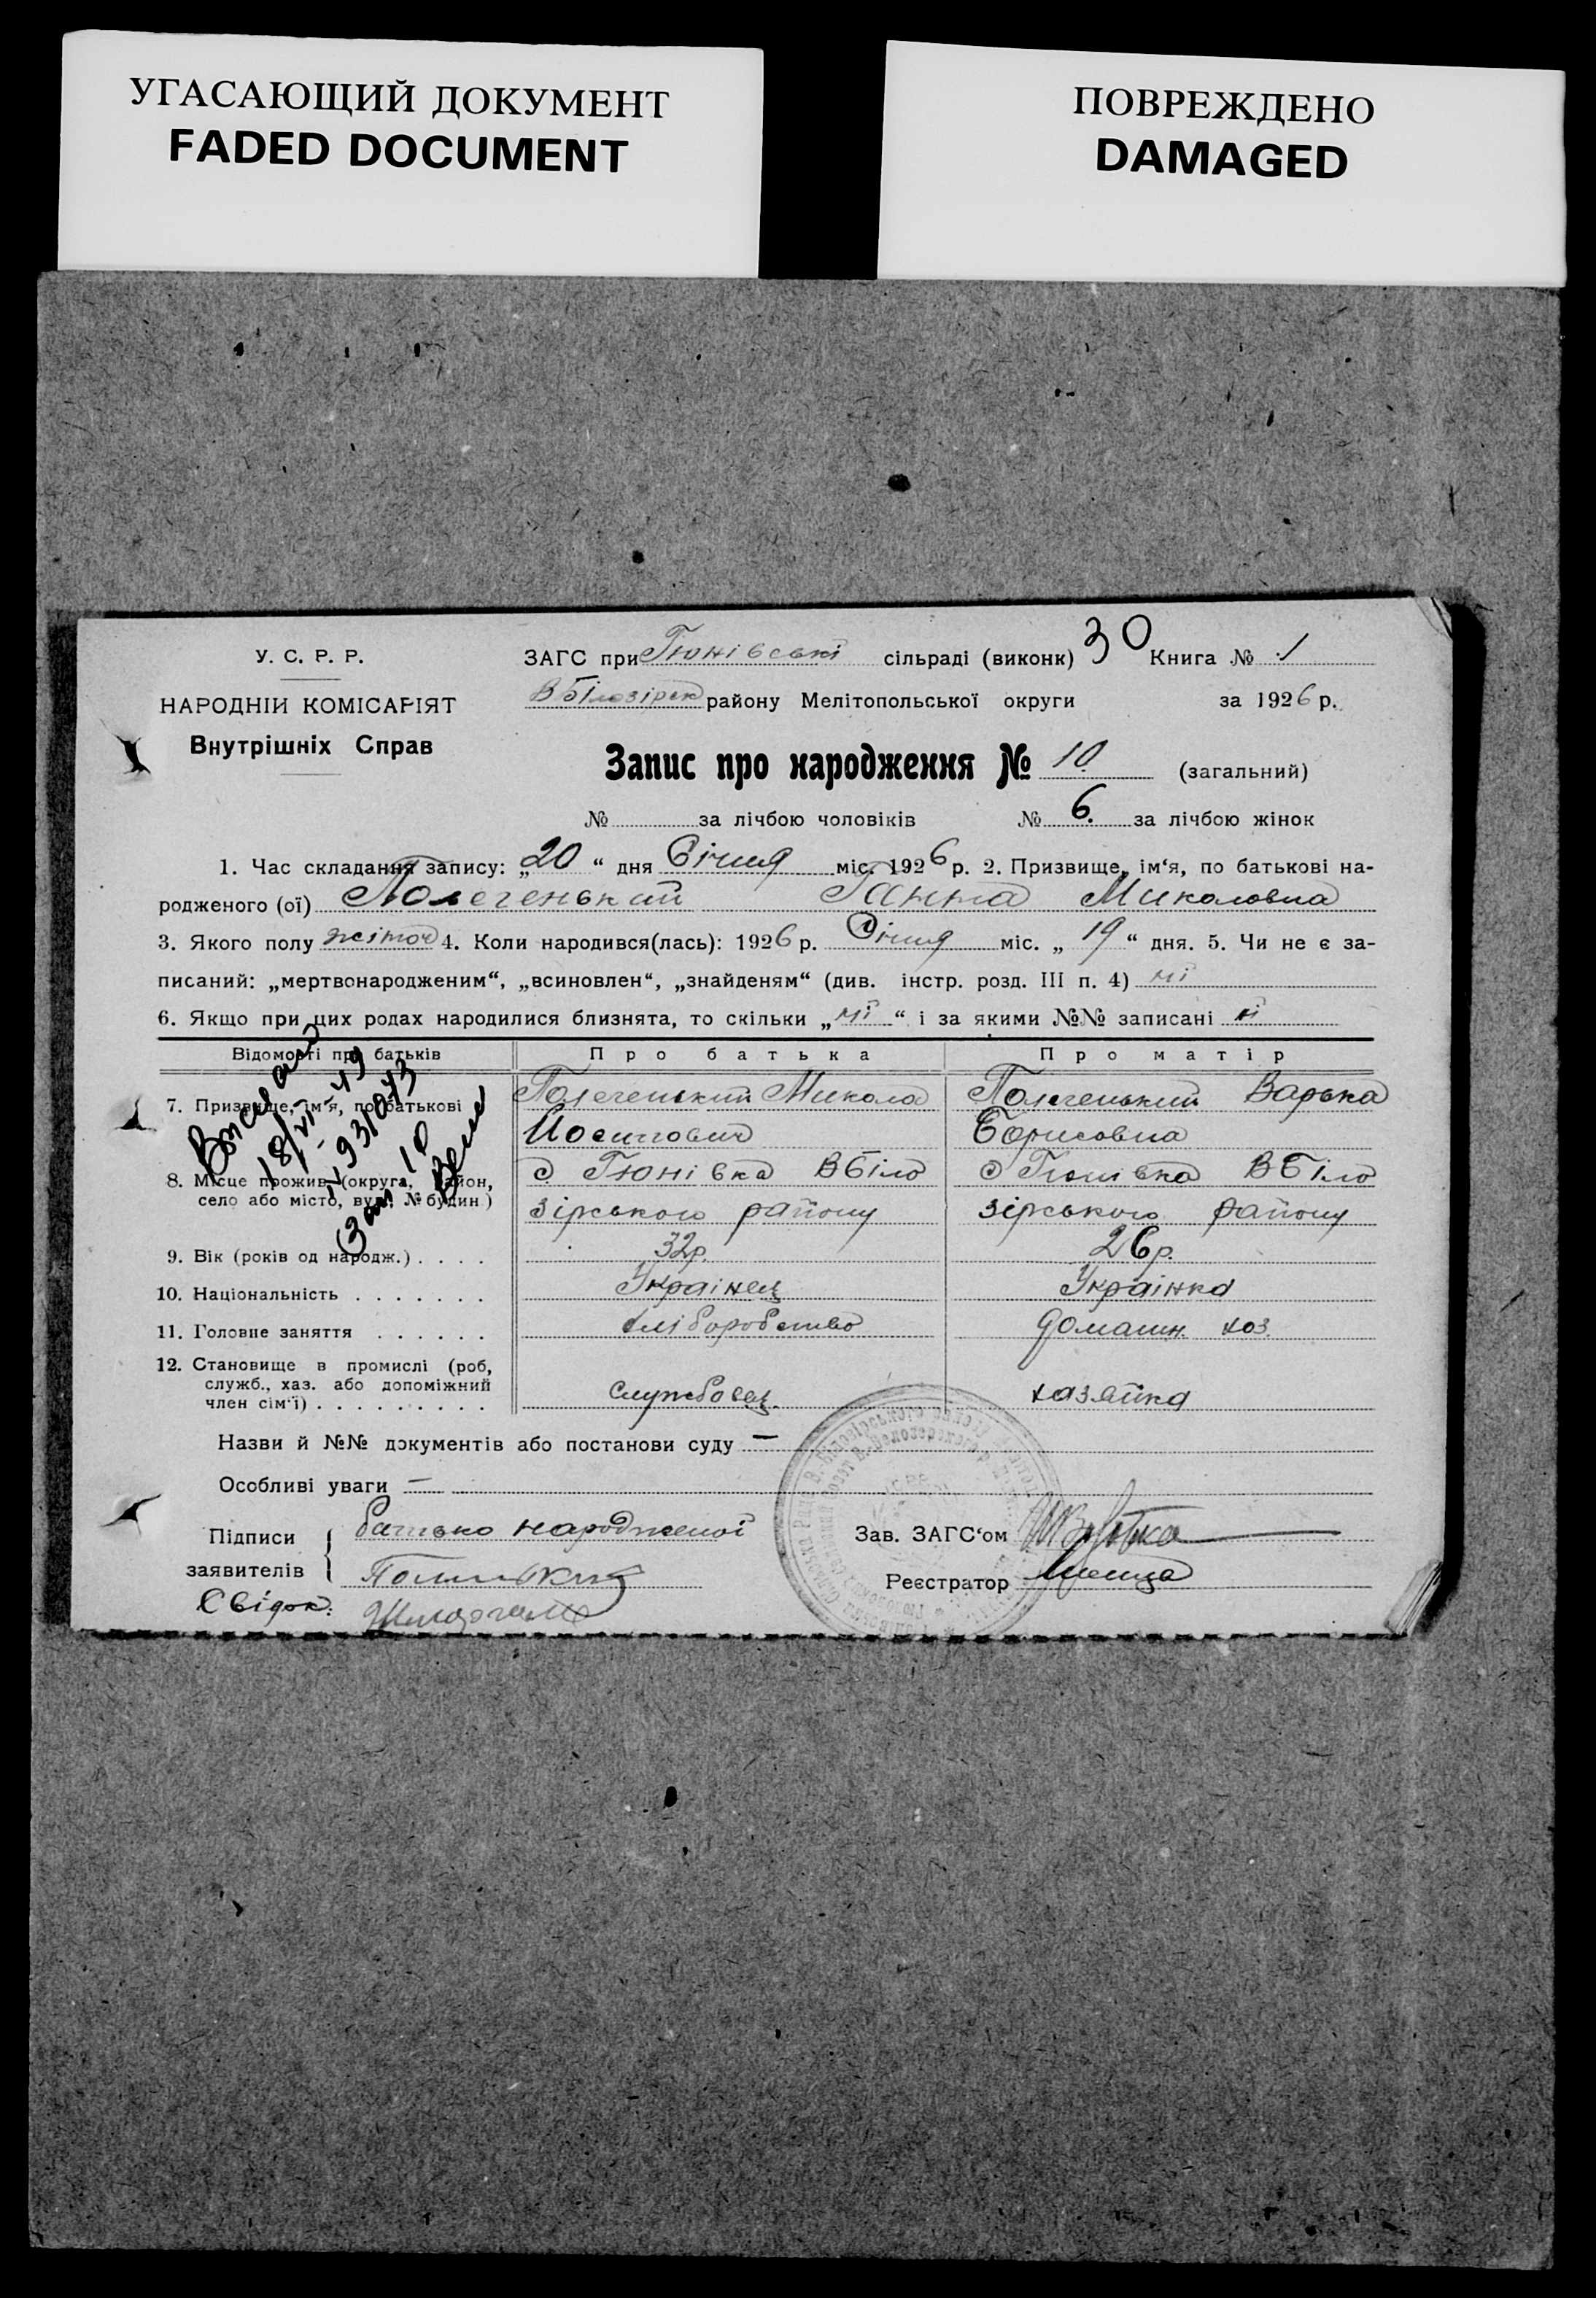 УГАСАЮЩИЙ ДОКУМЕНТ
FADED DOCUMENT
ПОВРЕЖДЕНО
DAMAGED
У. С. Р. Р.
НАРОДНІЙ КОМІСАРІЯТ
Внутрішніх Справ
ЗАГС при Гюнівські сільраді (виконк) 30 Книга № 1
В Білозірск району Мелітопольської округи за 1926 р.
Запис про народження № 10. (загальний)
№ за лічбою чоловіків № 6. за лічбою жінок
1. Час складання запису: „20“ дня Січня міс. 1926 р. 2. Призвище, ім‘я, по батькові на-
родженого (ої) Полегенький Ганна Миколовна
3. Якого полу жіноч 4. Коли народився(лась): 1926 р. Січня міс. „19“ дня. 5. Чи не є за-
писаний: „мертвонародженим“, „всиновлен“, „знайденям“ (див. інстр. розд. III п. 4) ні
6. Якщо при цих родах народилися близнята, то скільки „ні“ і за якими №№ записані ні
Відомості про батьків Про батька Про матір
7. Призвище, ім‘я, по батькові Полегенький Микола Полегенький Варька
Йосипович Борисовна
8. Місце прожив. (округа, район, с Гюнівка В Біло с Гюнівка В Біло
село або місто, вул., № будин) зірського району зірського району
9. Вік (років од народж.) . . . . 32р. 26р.
10. Національність . . . . . . . Українец Українка
11. Головне заняття . . . . . . хліборобство домашн. хоз.
12. Становище в промислі (роб,
служб., хаз. або допоміжний
член сім‘ї) . . . . . . . . . службовец. хазяйка
Назви й №№ документів або постанови суду —
Особливі уваги —
Підписи батько народженої
заявителів
Свідок:
Зав. ЗАГС‘ом
Реєстратор
18/VI-49